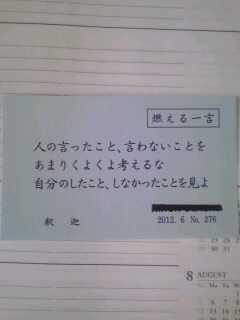 燃える一言
人の言ったこと、言わないことを
あまりくよくよ考えるな
自分のしたこと、しなかったことを見よ
釈 迦
2012. 6 No. 276
8 AUGUST